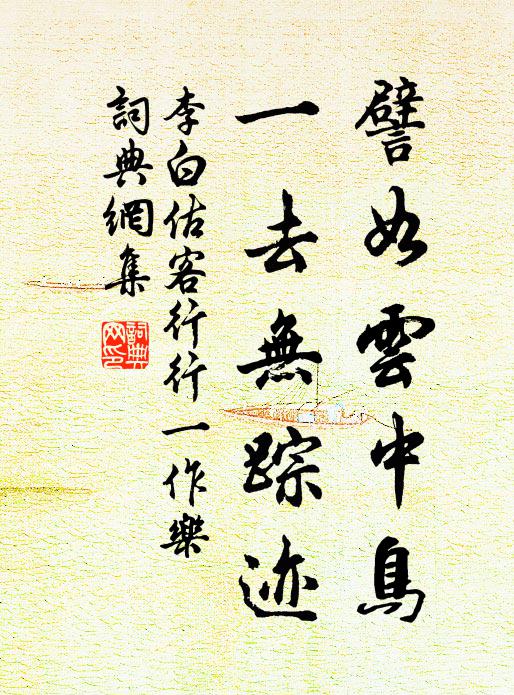 譬如雲中鳥
一去無踪迹
李白估客行行一作樂
詞典網集
詞典網印